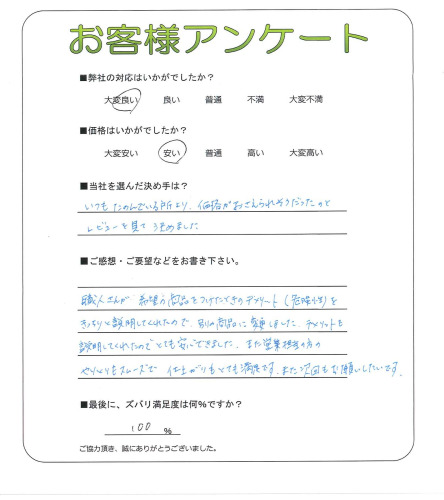 お客様アンケート
■弊社の対応はいかがでしたか？
大変良い 良い 普通 不満 大変不満
■価格はいかがでしたか？
大変安い 安い 普通 高い 大変高い
■当社を選んだ決め手は？
いつもたのんでいる所より、価格がおさえられそうだったのと
レビューを見てきめました
■ご感想・ご要望などをお書き下さい。
職人さんが希望の商品をつけたときのデメリット(危険性)を
きっちりと説明してくれたので、別の商品に変更しました。デメリットも
説明してくれたのでとても安心できました。また営業担当の方の
やりとりもスムーズで仕上がりもとても満足です。また次回もお願いしたいです。
■最後に、ズバリ満足度は何%ですか？
100 %
ご協力頂き、誠にありがとうございました。